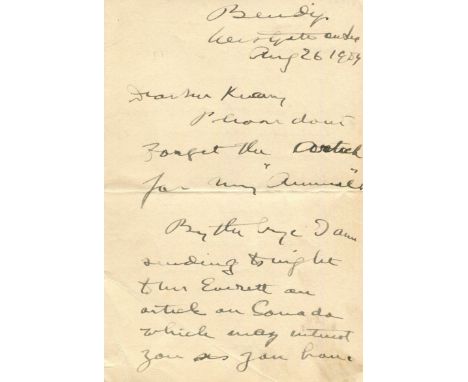 Aug 26 19
Dear Mr
Please don't
forget the article
for my "Annual"
By the bye I am
sending to night
to Mr Everett an
article on Canada
which may interest
you as you have